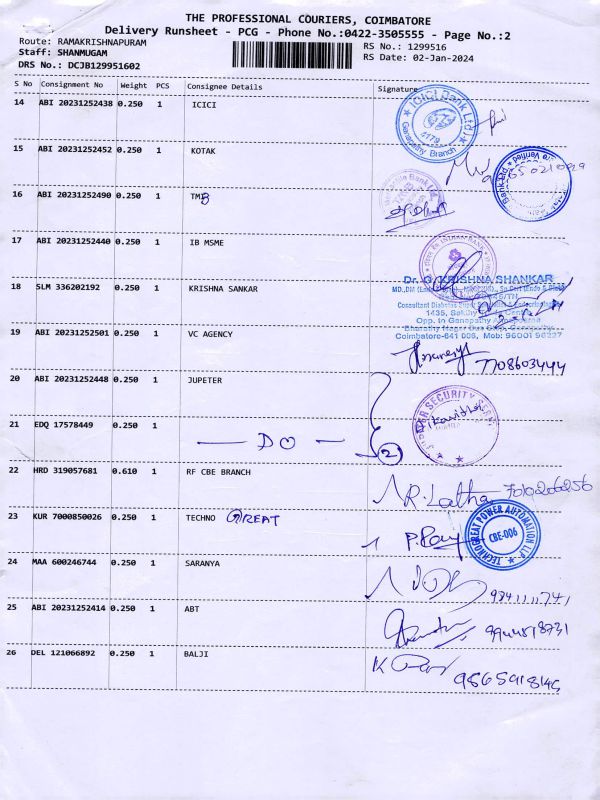 THE PROFESSIONAL COURIERS, COIMBATORE
Delivery Runsheet - PCG - Phone No.:0422-3505555 - Page No.:2
Route: RAMAKRISHNAPURAM
RS No.: 1299516
Staff: SHANMUGAM
RS Date: 02-Jan-2024
DRS No.: DCJB129951602
S No Consignment No Weight PCS Consignee Details Signature
14 ABI 20231252438 0.250 1 ICICI
ICICI Bank Ltd.
4179
Ganapathy Branch
15 ABI 20231252452 0.250 1 KOTAK
16 ABI 20231252490 0.250 1 TMB
17 ABI 20231252440 0.250 1 IB MSME
INDIAN BANK
18 SLM 336202192 0.250 1 KRISHNA SANKAR
Dr. G. KRISHNA SHANKAR
Opp. to Ganapathy
Coimbatore-641 006, Mob: 96001 96227
19 ABI 20231252501 0.250 1 VC AGENCY
7708603444
20 ABI 20231252448 0.250 1 JUPETER
SECURITY SERV
21 EDQ 17578449 0.250 — DO — 2
22 HRD 319057681 0.610 1 RF CBE BRANCH
R. Latha
23 KUR 7000850026 0.250 1 TECHNO GREAT
TECHNOGREAT POWER AUTOMATION LLP
CBE-006
24 MAA 600246744 0.250 1 SARANYA
25 ABI 20231252414 0.250 1 ABT
26 DEL 121066892 0.250 1 BALJI